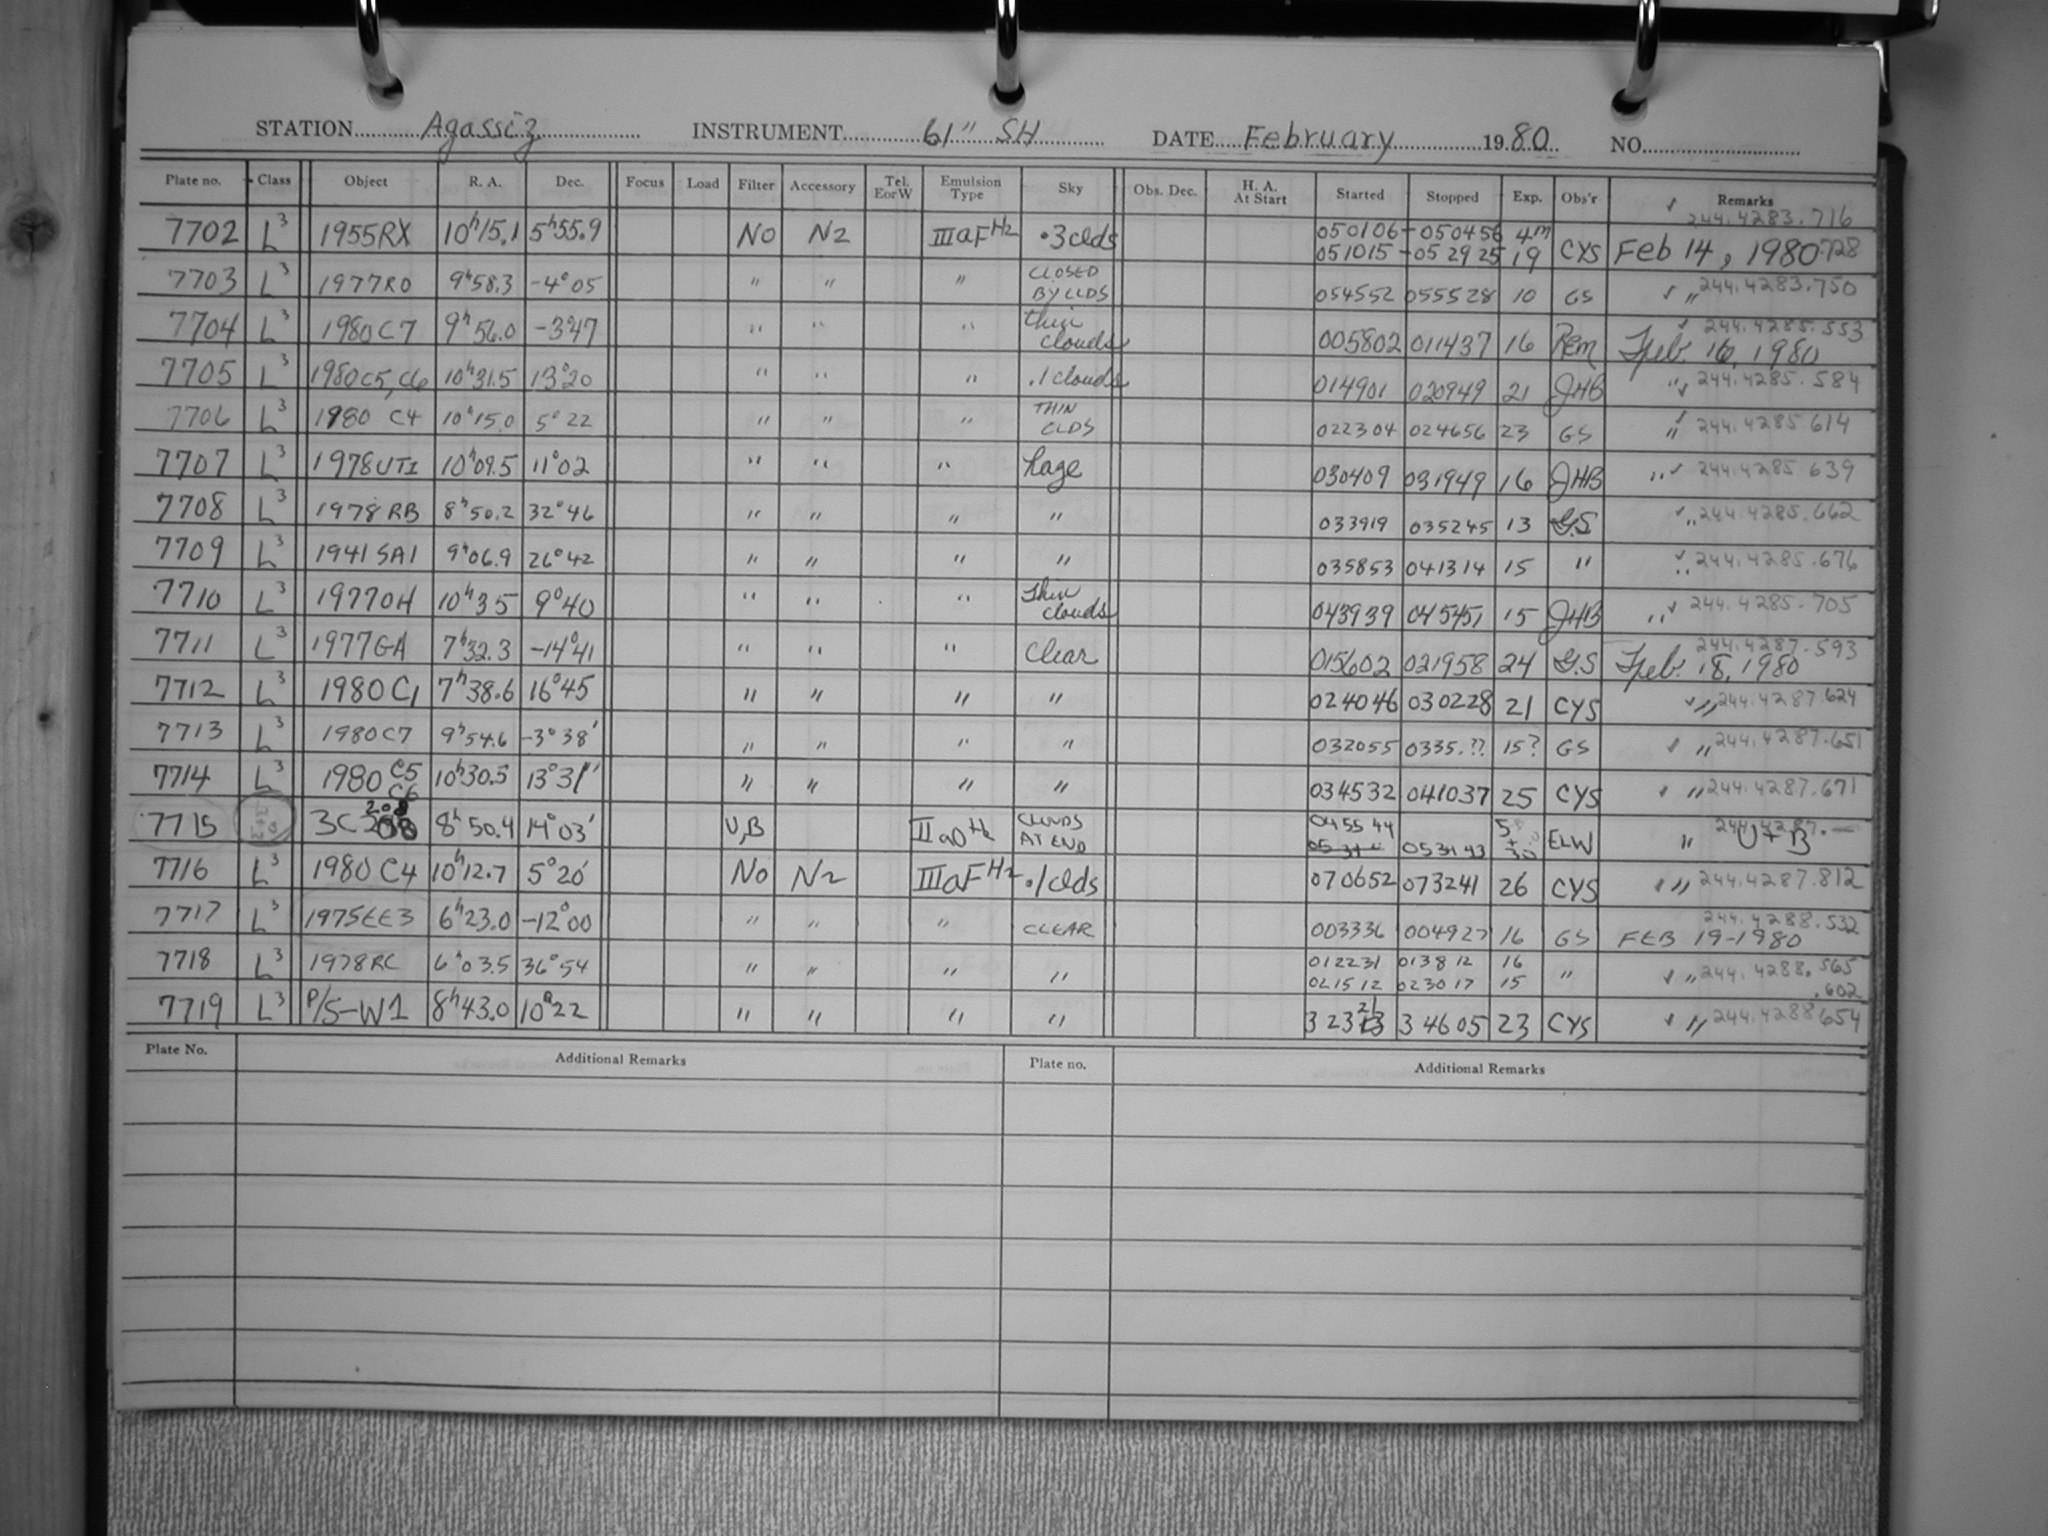 STATION Agassiz INSTRUMENT 61" SH DATE February 1980 NO.
Plate no. Class Object R. A. Dec. Focus Load Filter Accessory Tel. EorW Emulsion Type Sky Obs. Dec. H. A. At Start Started Stopped Exp. Obs'r Remarks
7702 L³ 1955RX 10ʰ15.1 5°55.9 NO N2 IIIaF H2 .3 clds 050106-050456 4m ✓ 244.4283.716
051015-052925 19 CYS Feb 14, 1980 .728
7703 L³ 1977RO 9ʰ58.3 -4°05 " " " CLOSED BY CLDS 054552 055528 10 GS ✓ " 244.4283.750
7704 L³ 1980 C7 9ʰ56.0 -3°47 " " " thin clouds 005802 011437 16 REM ✓ 244.4285.553 Feb. 16, 1980
7705 L³ 1980C5,C6 10ʰ31.5 13°20 " " " .1 clouds 014901 020949 21 JHB " ✓ 244.4285.584
7706 L³ 1980 C4 10ʰ15.0 5°22 " " " THIN CLDS 022304 024656 23 GS ✓ " 244.4285 614
7707 L³ 1978UT1 10ʰ09.5 11°02 " " " haze 030409 031949 16 JHB " ✓ 244.4285 639
7708 L³ 1978 RB 8ʰ50.2 32°46 " " " " 033919 035245 13 G.S ✓ " 244.4285.662
7709 L³ 1941 SA1 9ʰ06.9 26°42 " " " " 035853 041314 15 " ✓ " 244.4285.676
7710 L³ 1977OH 10ʰ35 9°40 " " " thin clouds 043939 045451 15 JHB " ✓ 244.4285.705
7711 L³ 1977GA 7ʰ32.3 -14°41 " " " clear 015602 021958 24 G.S 244.4287.593 Feb. 18, 1980
7712 L³ 1980 C1 7ʰ38.6 16°45 " " " " 024046 030228 21 CYS ✓ " 244.4287.624
7713 L³ 1980C7 9ʰ54.6 -3°38' " " " " 032055 0335.?? 15? GS ✓ " 244.4287.651
7714 L³ 1980 C5 C6 10ʰ30.5 13°31' " " " " 034532 041037 25 CYS ✓ " 244.4287.671
7715 3C 208 8ʰ50.4 14°03' U,B IIaD H2 CLOUDS AT END 045544 053143 30 ELW " 244.4287.— U + B
7716 L³ 1980 C4 10ʰ12.7 5°20' NO N2 IIIaF H2 .1 clds 070652 073241 26 CYS ✓ " 244.4287.812
7717 L³ 1975EE3 6ʰ23.0 -12°00 " " " CLEAR 003336 004927 16 GS 244.4288.532 FEB 19-1980
7718 L³ 1978RC 6ʰ03.5 36°54 " " " " 012231 013812 16 " ✓ " 244.4288.565
021512 023017 15 .602
7719 L³ P/S-W1 8ʰ43.0 10°22 " " " " 32321 34605 23 CYS ✓ " 244.4288654
Plate No. Additional Remarks Plate no. Additional Remarks